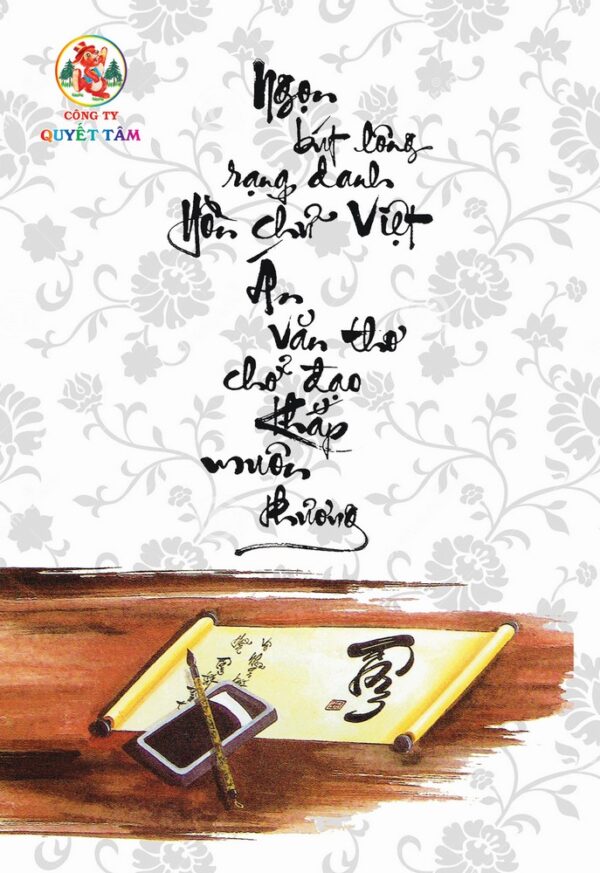 CÔNG TY
QUYẾT TÂM
Ngọn
bút lông
rạng danh
Hồn chữ Việt
Án
văn thơ
chở đạo
khắp
muôn
phương